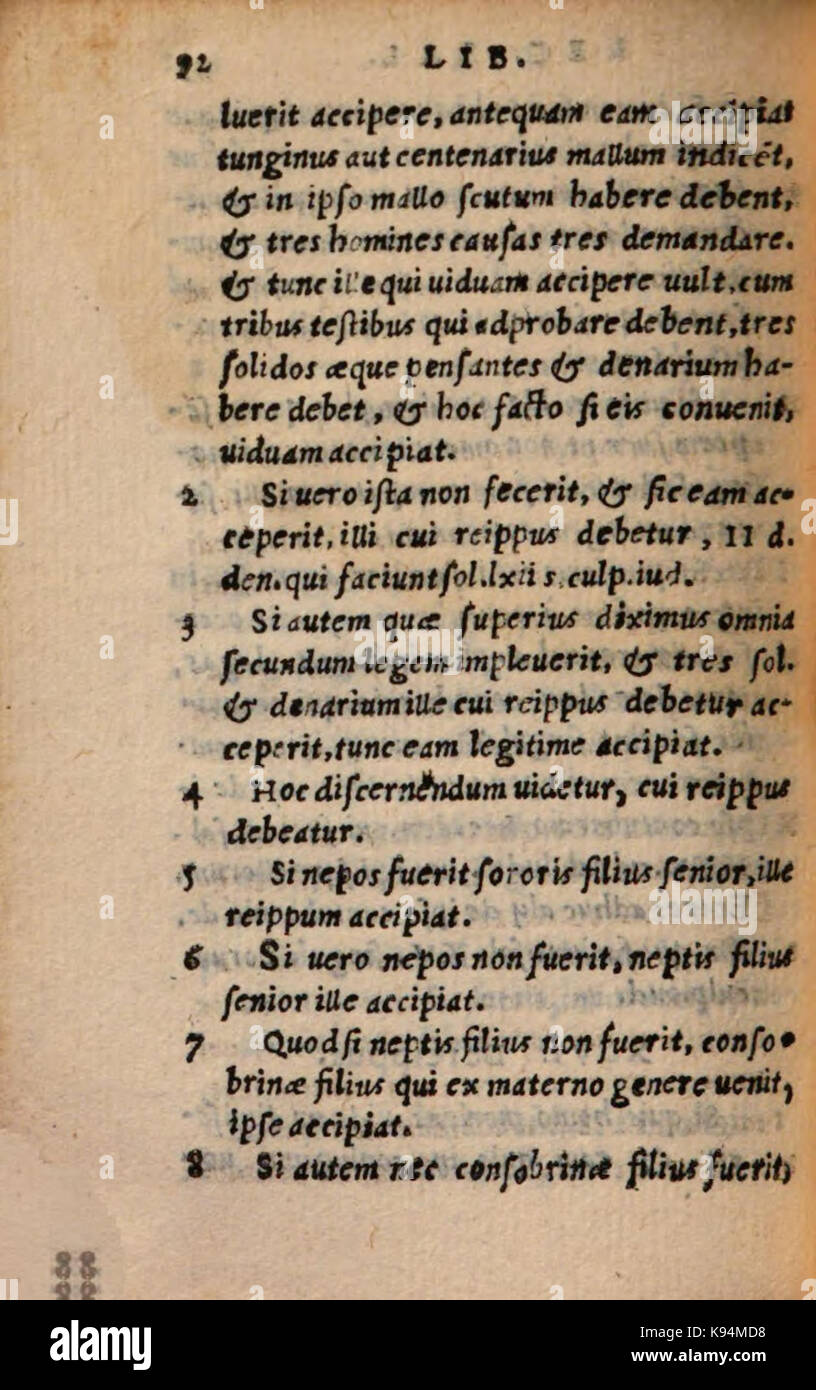 92 LIB.
luerit accipere, antequam eam accipiat
tunginus aut centenarius mallum indicét,
& in ipso mallo scutum habere debent,
& tres homines causas tres demandare.
& tunc ille qui uiduam accipere uult, cum
tribus testibus qui adprobare debent, tres
solidos æque pensantes & denarium ha-
bere debet, & hoc facto si eis conuenit,
uiduam accipiat.
2 Si uero ista non fecerit, & sic eam ac-
ceperit, illi cui reippus debetur, II d.
den. qui faciunt sol. lxii s. culp. iud.
3 Si autem quæ superius diximus omnia
secundum legem impleuerit, & tres sol.
& denarium ille cui reippus debetur ac-
ceperit, tunc eam legitime accipiat.
4 Hoc discernendum uidetur, cui reippus
debeatur.
5 Si nepos fuerit sororis filius senior, ille
reippum accipiat.
6 Si uero nepos non fuerit, neptis filius
senior ille accipiat.
7 Quod si neptis filius non fuerit, conso-
brinæ filius qui ex materno genere uenit,
ipse accipiat.
8 Si autem nec consobrinæ filius fuerit,
alamy
a
alamy
a
alamy
Image ID: K94MD8
www.alamy.com